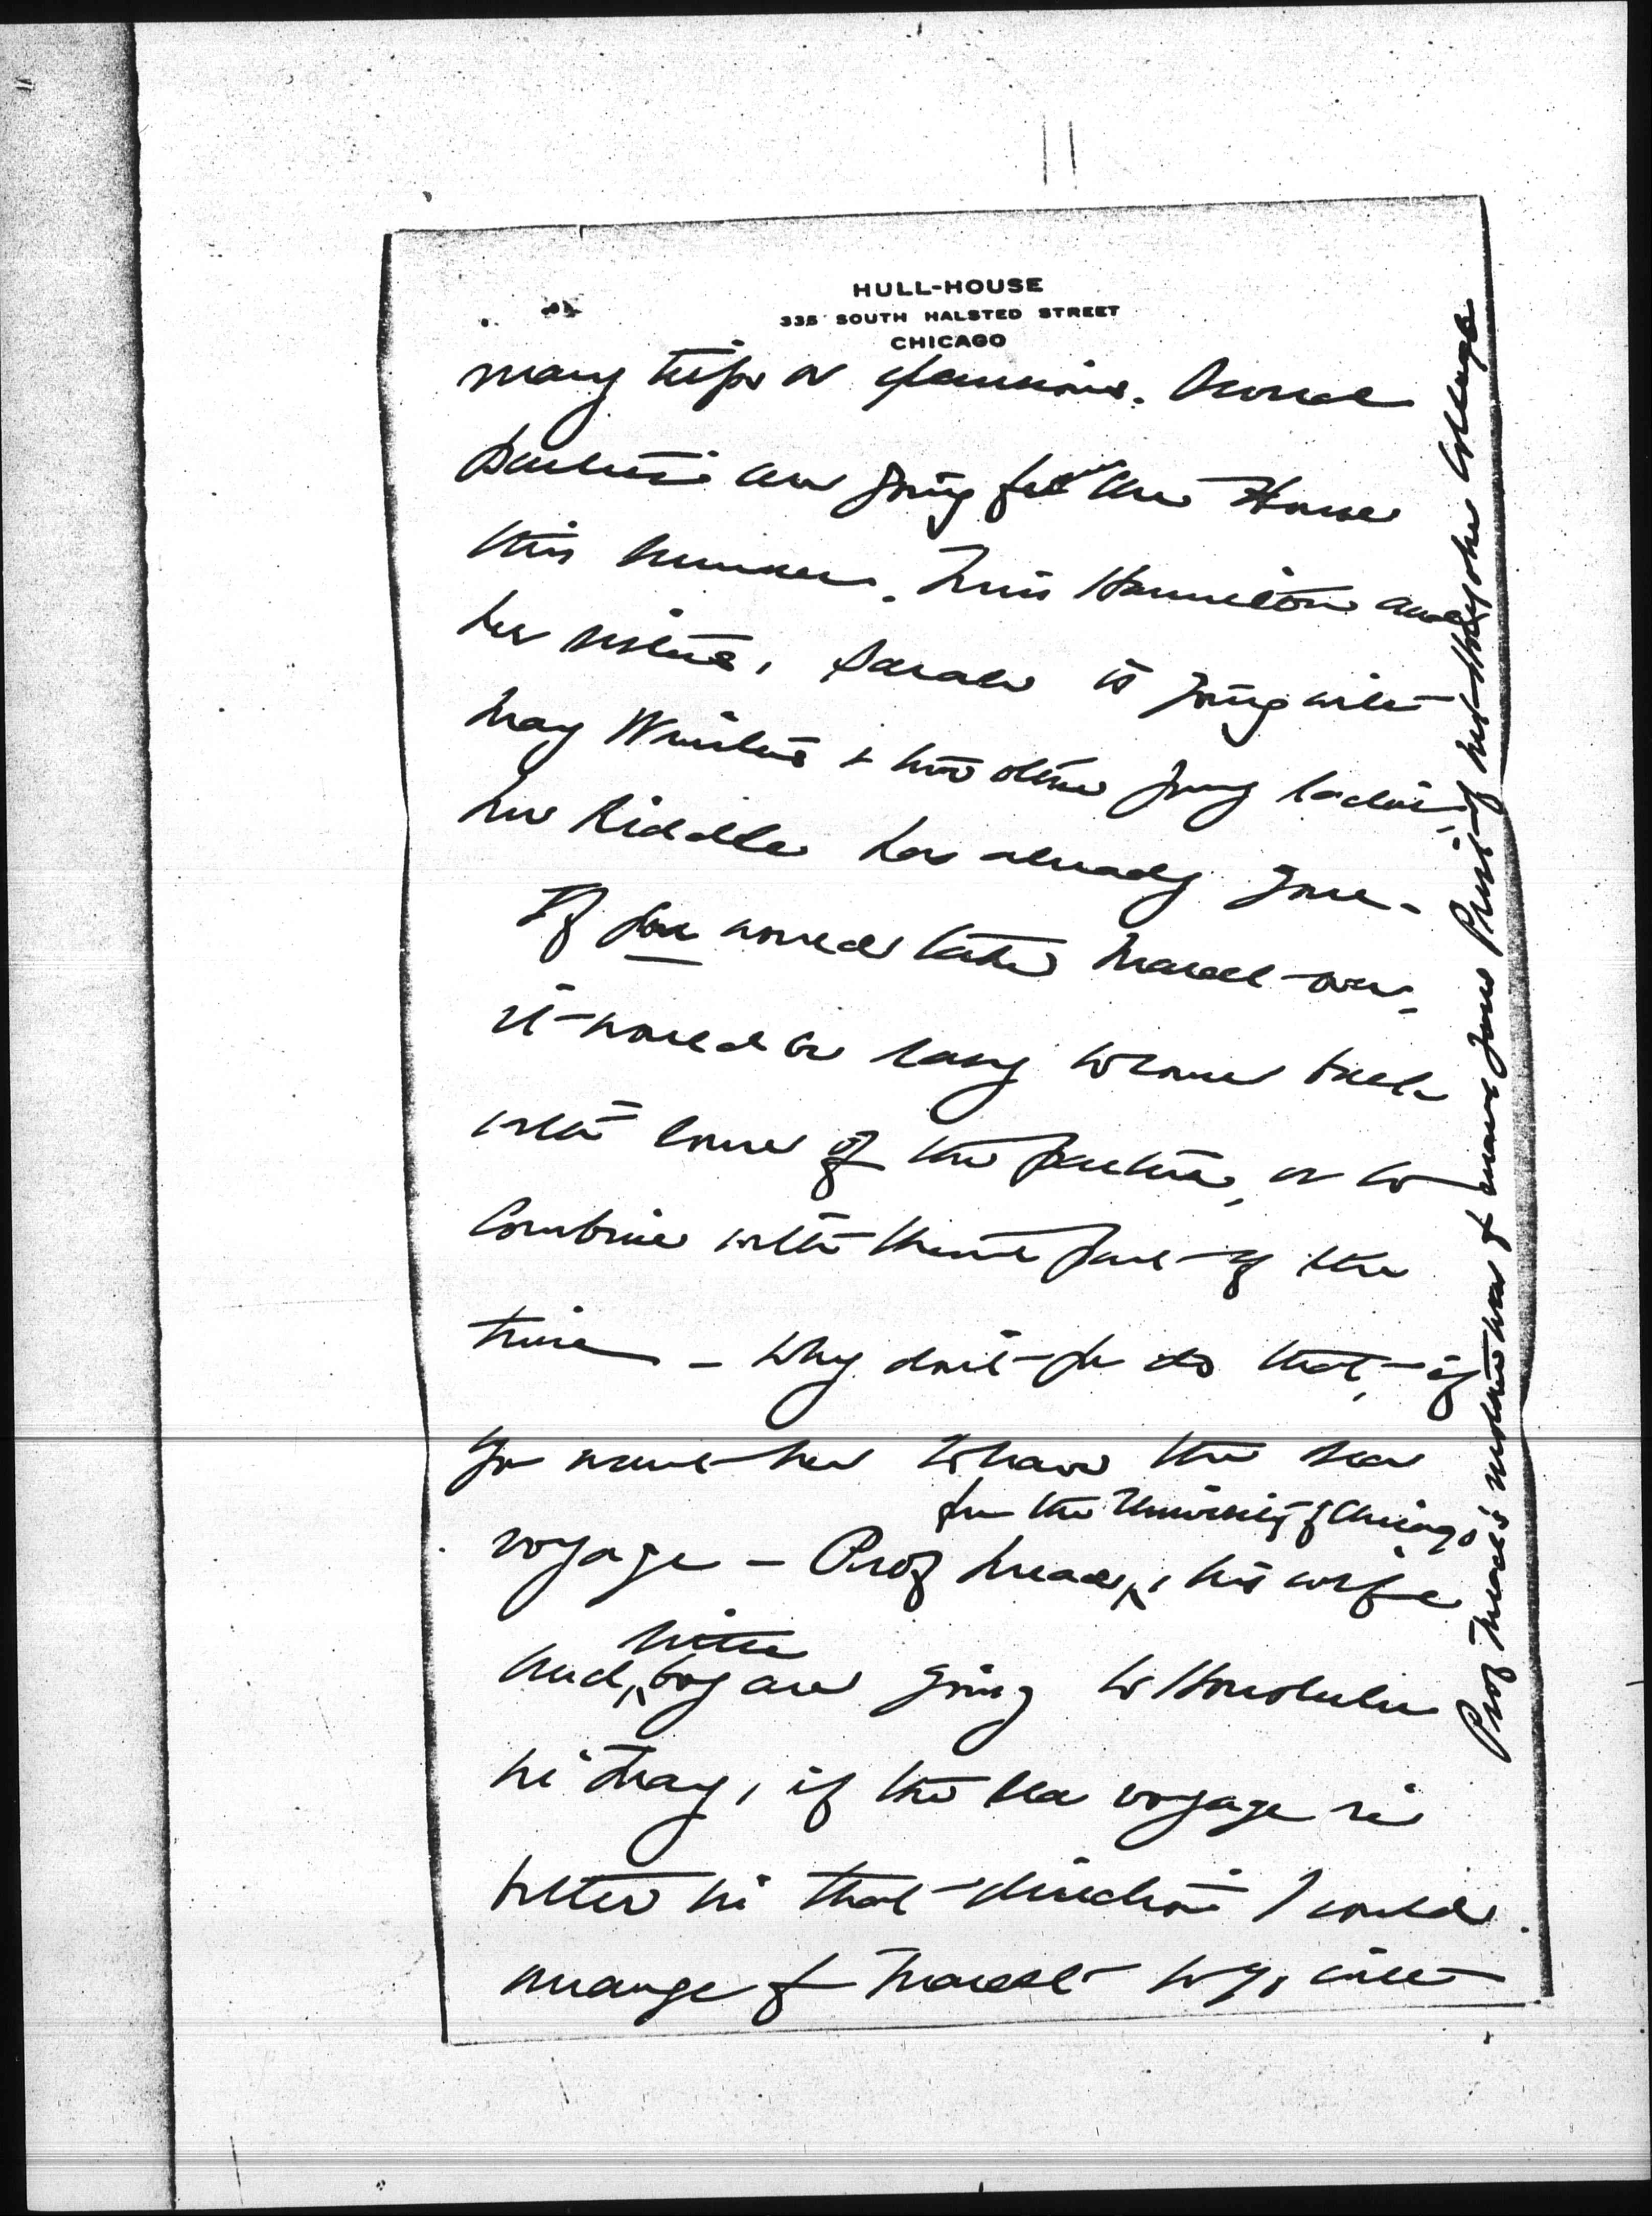 HULL-HOUSE
335 SOUTH HALSTED STREET
CHICAGO
many trips or excursions. Several
parties are going from the House
this summer. Miss Hamilton and
her sister, Sarah is going with
May Wilmarth & two other young ladies,
Mrs Riddle has already gone.
If you would take Marcet over,
it would be easy to come back
with some of the parties, or to
combine with them part of the
time – Why don't you do that, if
you want her to have the sea
from the University of Chicago
voyage – Prof Mead, his wife
little
and boy are going to Honolulu
in May, if the sea voyage is
better in that direction I could
arrange for Marcet to go with
Prof Mead's mother was for many years Prest of Mt Holyoke College